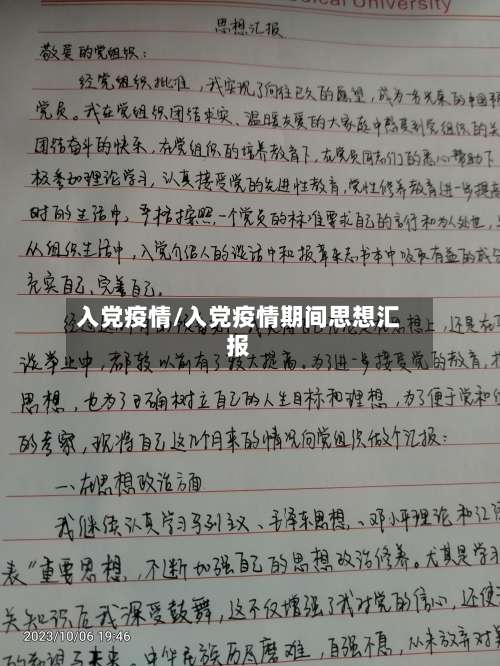 edical University
思想汇报
敬爱的党组织:
经党组织批准,我实现了向往已久的愿望,成为一名光荣的中国
党员。我在党组织团结求实、温暖友爱的大家庭中感受到党组织的关
团结奋斗的快乐,在党组织的培养教育下,在党员同志们的悉心帮助下
极参加理论学习,认真接受党的先进性教育,党性修养教育进一步提高
时的生活中,严格按照一个党员的标准要求自己的言行和为人处世,
从组织生活中,入党介绍人的谈话中和报章杂志书本中吸取有益的成分
充实自己,完善自己。
入党疫情/入党疫情期间思想汇
报
思想上,还是在
学业中,都较以前有了较大提高。为了进一步接受党的教育,
思想,也为了正确树立自己的人生目标和理想,为了便于党和
的考察,现将自己这几个月来的情况向党组织做个汇报:
一、在思想政治方面
我继续认真学习马列主义、毛泽东思想、邓小平理论和江泽
表”重要思想,不断加强自己的思想政治修养。尤其是学习
关知识后我深受鼓舞,这不仅增强了我对党的信心,还使
2023/10/06 19:46
中华民族历尽磨难,自强不息,从未放弃对